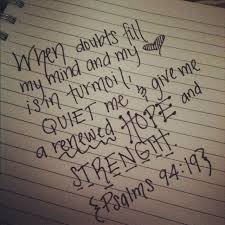 When doubts fill
my mind and my ♥
is in turmoil,
QUIET me & give me
a renewed HOPE and
STRENGTH.
{Psalms 94:19}